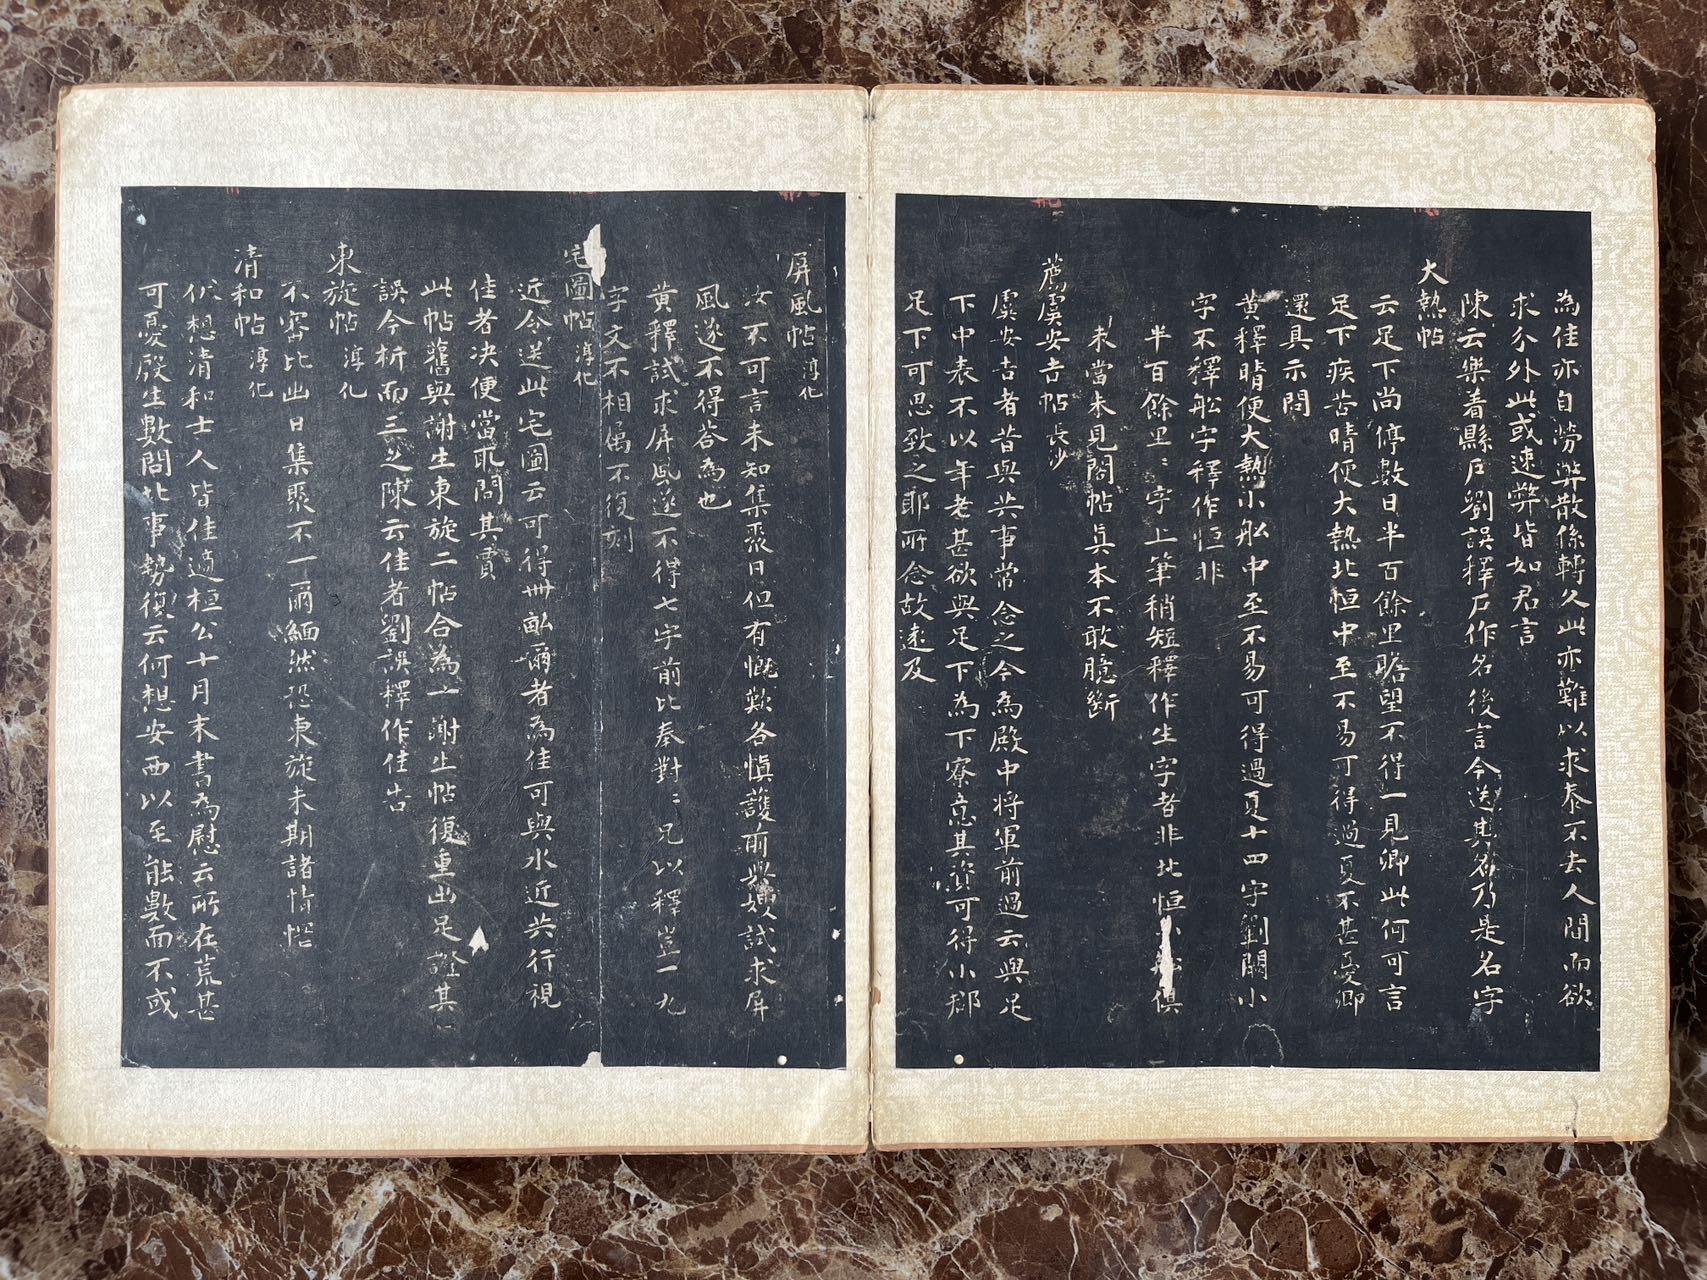 為佳亦自勞弊散係轉久此亦難以求泰不去人間而欲
求分外此或速弊皆如君言
陳云樂着縣戶劉誤釋戶作名後言今送其名乃是名字
大熱帖
云足下尚停數日半百餘里瞻望不得一見卿此何可言
足下疾苦晴便大熱北恒中至不易可得過夏不甚憂卿
還具示問
黃釋晴便大熱小舩中至不易可得過夏十四字劉闕小
字不釋舩字釋作恒非
半百餘里〻字上筆稍短釋作生字者非北恒小舩俱
未當未見閣帖真本不敢臆斷
薦虞安吉帖長沙
虞安吉者昔與共事常念之今為殿中將軍前過云與足
下中表不以年老甚欲與足下為下寮意其資可得小郡
足下可思致之耶所念故遠及
屏風帖淳化
汝不可言未知集聚日但有慨歎各慎護前與嫂試求屏
風遂不得荅為也
黃釋試求屏風遂不得七字前比奉對〻兄以釋豈一九
字文不相屬不復刻
宅圖帖淳化
近令送此宅圖云可得卅畝爾者為佳可與水近共行視
佳者决便當取問其賈
此帖舊與謝生東旋二帖合為一謝生帖復重出足證其
誤今析而三之陳云佳者劉誤釋作佳告
東旋帖淳化
不審比出日集聚不一爾緬然恐東旋未期諸情罔
清和帖淳化
伏想清和士人皆佳適桓公十月末書為慰云所在荒甚
可憂殷生數問北事勢復云何想安西以至能數面不或